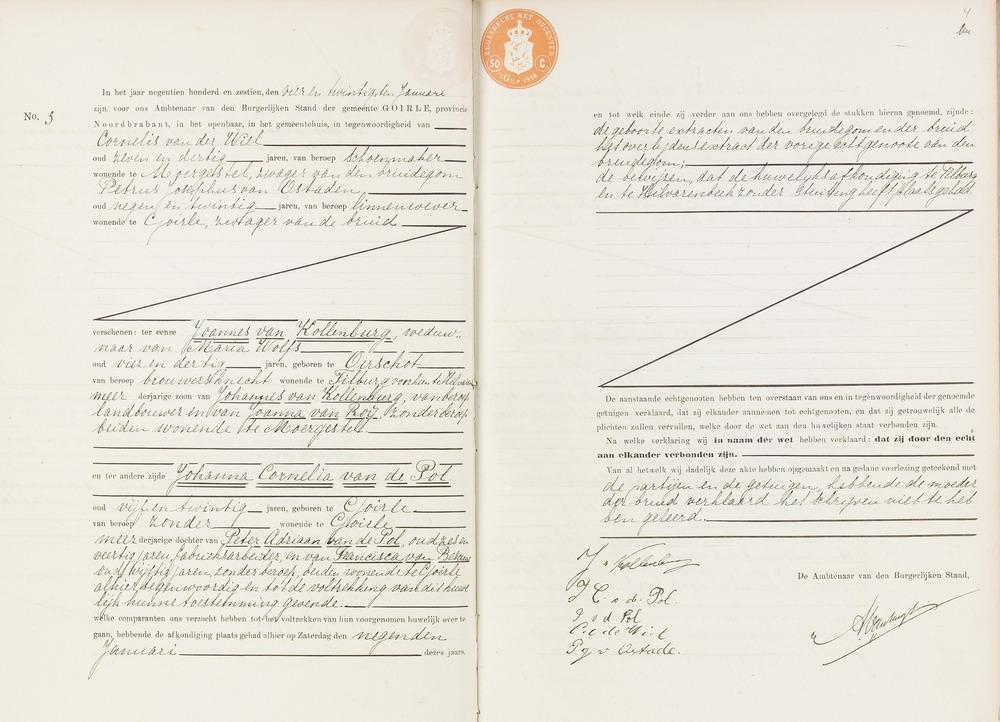 No. 3
In het jaar negentien honderd en zestien, den vier en twintigsten Januari
zijn voor ons Ambtenaar van den Burgerlijken Stand der gemeente GOIRLE, provincie
Noordbrabant, in het openbaar, in het gemeentehuis, in tegenwoordigheid van
Cornelis van der Wiel
oud zeven en dertig jaren, van beroep schoenmaker
wonende te Moergestel, zwager van den bruidegom
Petrus Josephus van Ostaden
oud negen en twintig jaren, van beroep linnenwever
wonende te Goirle, zwager van de bruid
verschenen: ter eenre Joannes van Kollenburg, weduw-
naar van Maria Wolfs
oud vier en dertig jaren, geboren te Oirschot
van beroep brouwersknecht wonende te Tilburg voorheen te
meer derjarige zoon van Johannes van Kollenburg, van beroep
landbouwer en van Joanna van Roij, zonder beroep
beiden wonende te Moergestel
en ter andere zijde Johanna Cornelia van de Pol
oud vijf en twintig jaren, geboren te Goirle
van beroep zonder wonende te Goirle
meer derjarige dochter van Peter Adriaan van de Pol, oud zes en
veertig jaren, fabrieksarbeider, en van Francisca van
oud vijftig jaren, zonder beroep, beiden wonende te Goirle
alhier tegenwoordig en tot de voltrekking van dit huwe
lijk hunne toestemming gevende.
welke comparanten ons verzocht hebben tot het voltrekken van hun voorgenomen huwelijk over te
gaan, hebbende de afkondiging plaats gehad alhier op Zaterdag den negenden
Januari dezes jaars.
ZEGELRECHT MET OPCENTEN
50 C.
4
en tot welk einde zij verder aan ons hebben overgelegd de stukken hierna genoemd, zijnde:
de geboorte extracten van den bruidegom en der bruid
het overlijdensextract der vorige echtgenoote van den
bruidegom;
de bewijzen, dat de huwelijksafkondiging te Tilburg
en te Hilvarenbeek zonder stuiting heeft plaats gehad
De aanstaande echtgenooten hebben ten overstaan van ons en in tegenwoordigheid der genoemde
getuigen verklaard, dat zij elkander aannemen tot echtgenooten, en dat zij getrouwelijk alle de
plichten zullen vervullen, welke door de wet aan den huwelijken staat verbonden zijn.
Na welke verklaring wij in naam der wet hebben verklaard: dat zij door den echt
aan elkander verbonden zijn.
Van al hetwelk wij dadelijk deze akte hebben opgemaakt en na gedane voorlezing geteekend met
de partijen en de getuigen, hebbende de moeder
der bruid verklaard het schrijven niet te heb
ben geleerd.
J v Kollenburg
J C. v. d. Pol.
P v d Pol
C. v. d. Wiel
P J v Ostade.
De Ambtenaar van den Burgerlijken Stand,